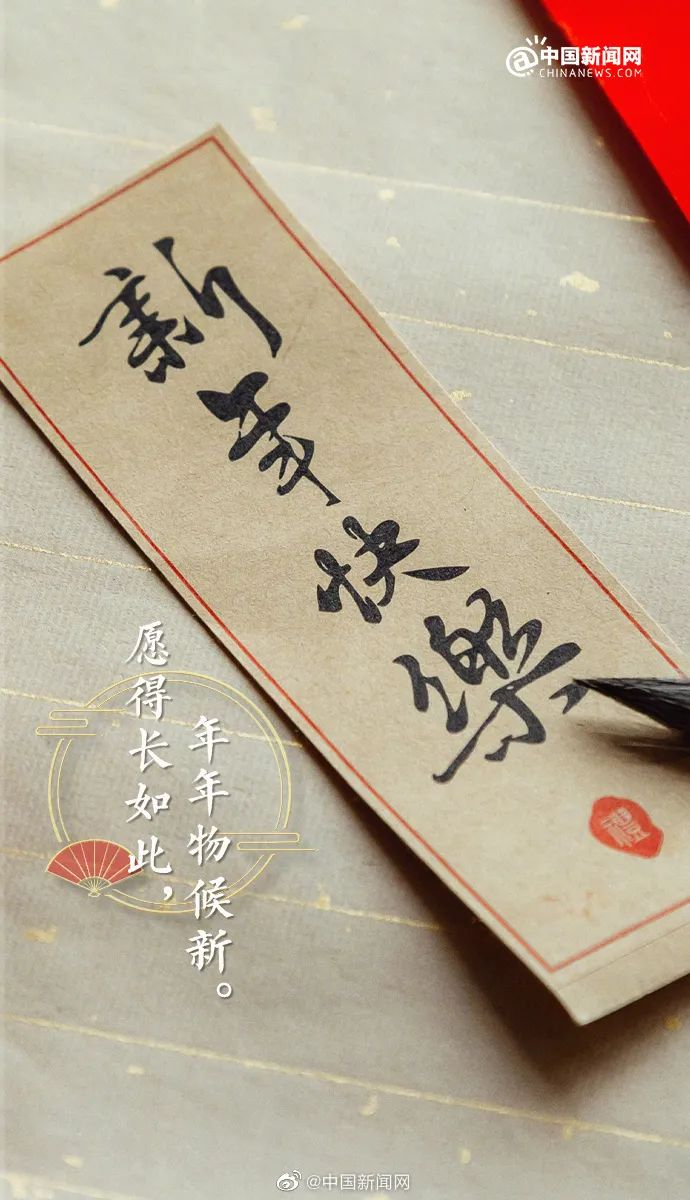 @中国新闻网
CHINANEWS.COM
新年快樂
愿得长如此，
年年物候新。
@中国新闻网